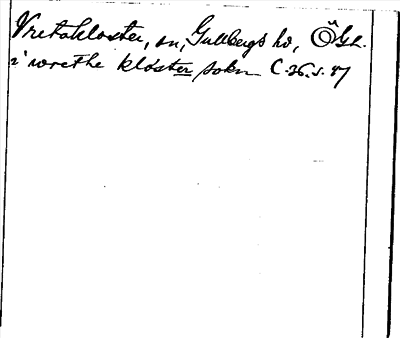 Vretakloster, sn, Gullbergs hd, ÖGL.
i wrethe kloster sokn C. 26. s. 47